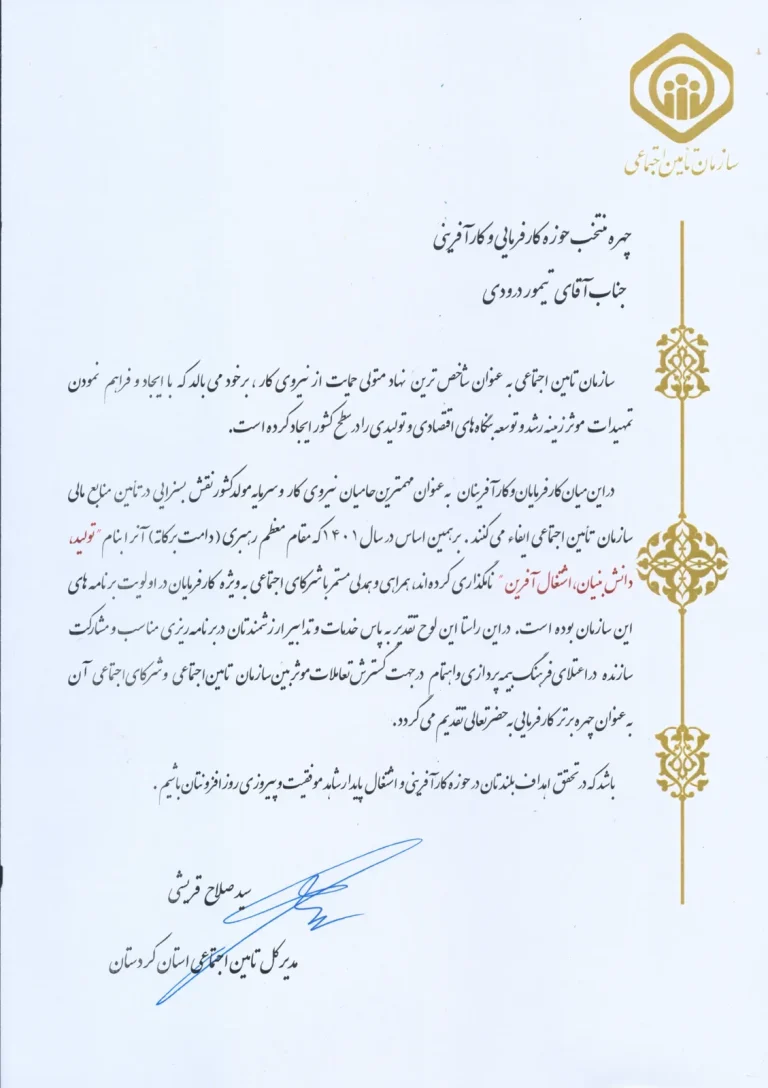 سازمان تأمین اجتماعی
چهره منتخب حوزه کارفرمایی و کارآفرینی
جناب آقای تیمور درودی
سازمان تامین اجتماعی به عنوان شاخص ترین نهاد متولی حمایت از نیروی کار ، برخود می بالد که با ایجاد و فراهم نمودن
تمهیدات موثر زمینه رشد و توسعه بنگاه های اقتصادی و تولیدی را در سطح کشور ایجاد کرده است.
در این میان کارفرمایان و کارآفرینان به عنوان مهمترین حامیان نیروی کار و سرمایه مولد کشور نقش بسزایی در تأمین منابع مالی
سازمان تأمین اجتماعی ایفاء می کنند . برهمین اساس در سال ۱۴۰۱ که مقام معظم رهبری (دامت برکاته) آنرا بنام "تولید،
دانش بنیان، اشتغال آفرین" نامگذاری کرده اند، همراهی و همدلی مستمر با شرکای اجتماعی به ویژه کارفرمایان در اولویت برنامه های
این سازمان بوده است. در این راستا این لوح تقدیر به پاس خدمات و تدابیر ارزشمندتان در برنامه ریزی مناسب و مشارکت
سازنده در اعتلای فرهنگ بیمه پردازی و اهتمام در جهت گسترش تعاملات موثر بین سازمان تامین اجتماعی و شرکای اجتماعی آن
به عنوان چهره برتر کارفرمایی به حضرتعالی تقدیم می گردد.
باشد که در تحقق اهداف بلندتان در حوزه کارآفرینی و اشتغال پایدار شاهد موفقیت و پیروزی روز افزونتان باشیم .
سید صلاح قریشی
مدیر کل تامین اجتماعی استان کردستان